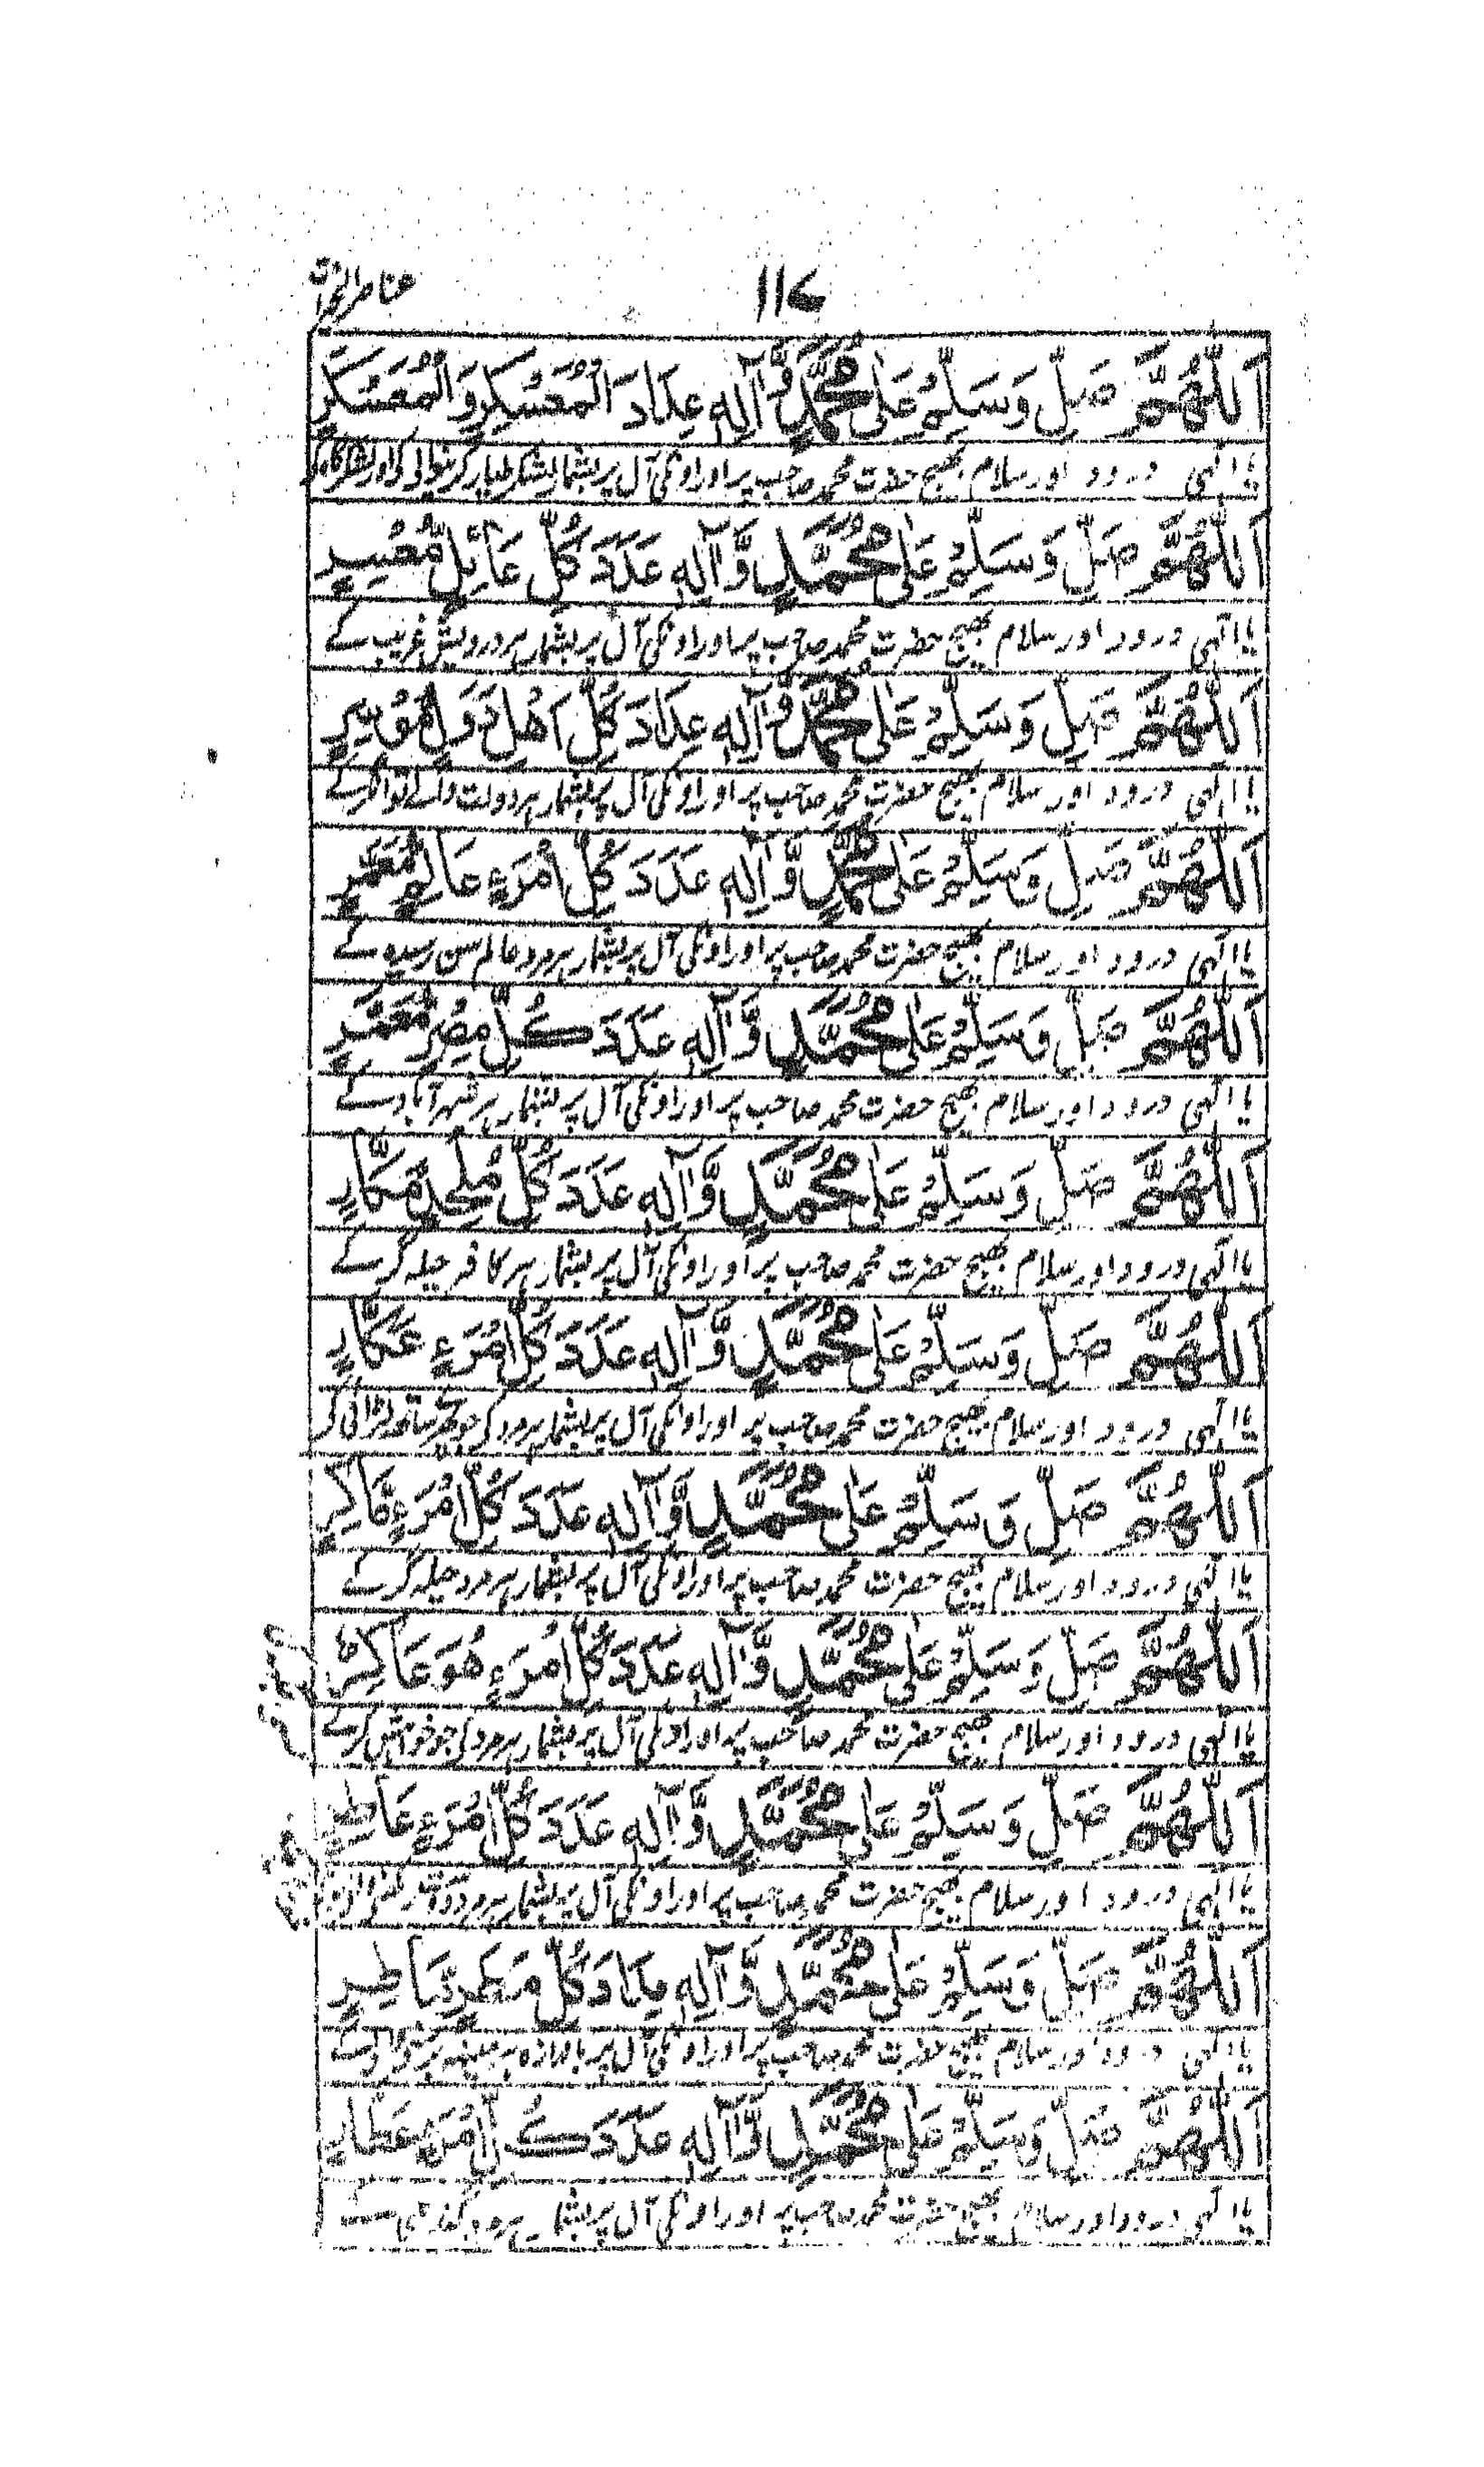 ۱۱۷
عناصر الخیرات
اَللّٰهُمَّ صَلِّ وَسَلِّمْ عَلٰى مُحَمَّدٍ وَّاٰلِهٖ عِدَادَ الْمُعَسْكِرِ وَالْمُعَسْكَرِ
یا الٰہی درود اور سلام بھیج حضرت محمد صاحب پر اور اونکی آل پر بشمار لشکر طیار کرنیوالی کی اور لشکر گاہ کی
اَللّٰهُمَّ صَلِّ وَسَلِّمْ عَلٰى مُحَمَّدٍ وَّاٰلِهٖ عَدَدَ كُلِّ عَائِلٍ
یا الٰہی درود اور سلام بھیج حضرت محمد صاحب پر اور اونکی آل پر بشمار ہر درویش غریب کے
اَللّٰهُمَّ صَلِّ وَسَلِّمْ عَلٰى مُحَمَّدٍ وَّاٰلِهٖ عِدَادَ كُلِّ اَهْلِ دَوَلٍ
یا الٰہی درود اور سلام بھیج حضرت محمد صاحب پر اور اونکی آل پر بشمار ہر دولت والے توانگر کے
اَللّٰهُمَّ صَلِّ وَسَلِّمْ عَلٰى مُحَمَّدٍ وَّاٰلِهٖ عَدَدَ كُلِّ امْرَءٍ عَالِمٍ مُّعَمَّرٍ
یا الٰہی درود اور سلام بھیج حضرت محمد صاحب پر اور اونکی آل پر بشمار ہر مرد عالم سن رسیدہ کے
اَللّٰهُمَّ صَلِّ وَسَلِّمْ عَلٰى مُحَمَّدٍ وَّاٰلِهٖ عَدَدَ كُلِّ مِصْرٍ مُّعَمَّرٍ
یا الٰہی درود اور سلام بھیج حضرت محمد صاحب پر اور اونکی آل پر بشمار ہر شہر آباد کے
اَللّٰهُمَّ صَلِّ وَسَلِّمْ عَلٰى مُحَمَّدٍ وَّاٰلِهٖ عَدَدَ كُلِّ مُلْحِدٍ مَّكَّارٍ
یا الٰہی درود اور سلام بھیج حضرت محمد صاحب پر اور اونکی آل پر بشمار ہر کافر حیلہ گر کے
اَللّٰهُمَّ صَلِّ وَسَلِّمْ عَلٰى مُحَمَّدٍ وَّاٰلِهٖ عَدَدَ كُلِّ امْرَءٍ عَكَّارٍ
یا الٰہی درود اور سلام بھیج حضرت محمد صاحب پر اور اونکی آل پر بشمار ہر مرد کی جو
اَللّٰهُمَّ صَلِّ وَسَلِّمْ عَلٰى مُحَمَّدٍ وَّاٰلِهٖ عَدَدَ كُلِّ امْرَءٍ مَّاكِرٍ
یا الٰہی درود اور سلام بھیج حضرت محمد صاحب پر اور اونکی آل پر بشمار ہر مرد حیلہ گر کے
اَللّٰهُمَّ صَلِّ وَسَلِّمْ عَلٰى مُحَمَّدٍ وَّاٰلِهٖ عَدَدَ كُلِّ امْرَءٍ هُوَ عَاكِرٌ
یا الٰہی درود اور سلام بھیج حضرت محمد صاحب پر اور اونکی آل پر بشمار ہر مرد کی جو
اَللّٰهُمَّ صَلِّ وَسَلِّمْ عَلٰى مُحَمَّدٍ وَّاٰلِهٖ عَدَدَ كُلِّ امْرَءٍ عَاطِرٍ
یا الٰہی درود اور سلام بھیج حضرت محمد صاحب پر اور اونکی آل پر بشمار ہر مرد
اَللّٰهُمَّ صَلِّ وَسَلِّمْ عَلٰى مُحَمَّدٍ وَّاٰلِهٖ كُلِّ مَطَرٍ مَّاطِرٍ
یا الٰہی درود اور سلام بھیج حضرت محمد صاحب پر اور اونکی آل پر باندازہ ہر مینہہ
اَللّٰهُمَّ صَلِّ وَسَلِّمْ عَلٰى مُحَمَّدٍ وَّاٰلِهٖ عَدَدَ كُلِّ امْرَءٍ عَطَّارٍ
یا الٰہی درود اور سلام بھیج حضرت محمد صاحب پر اور اونکی آل پر بشمار ہر مرد گندھی کے